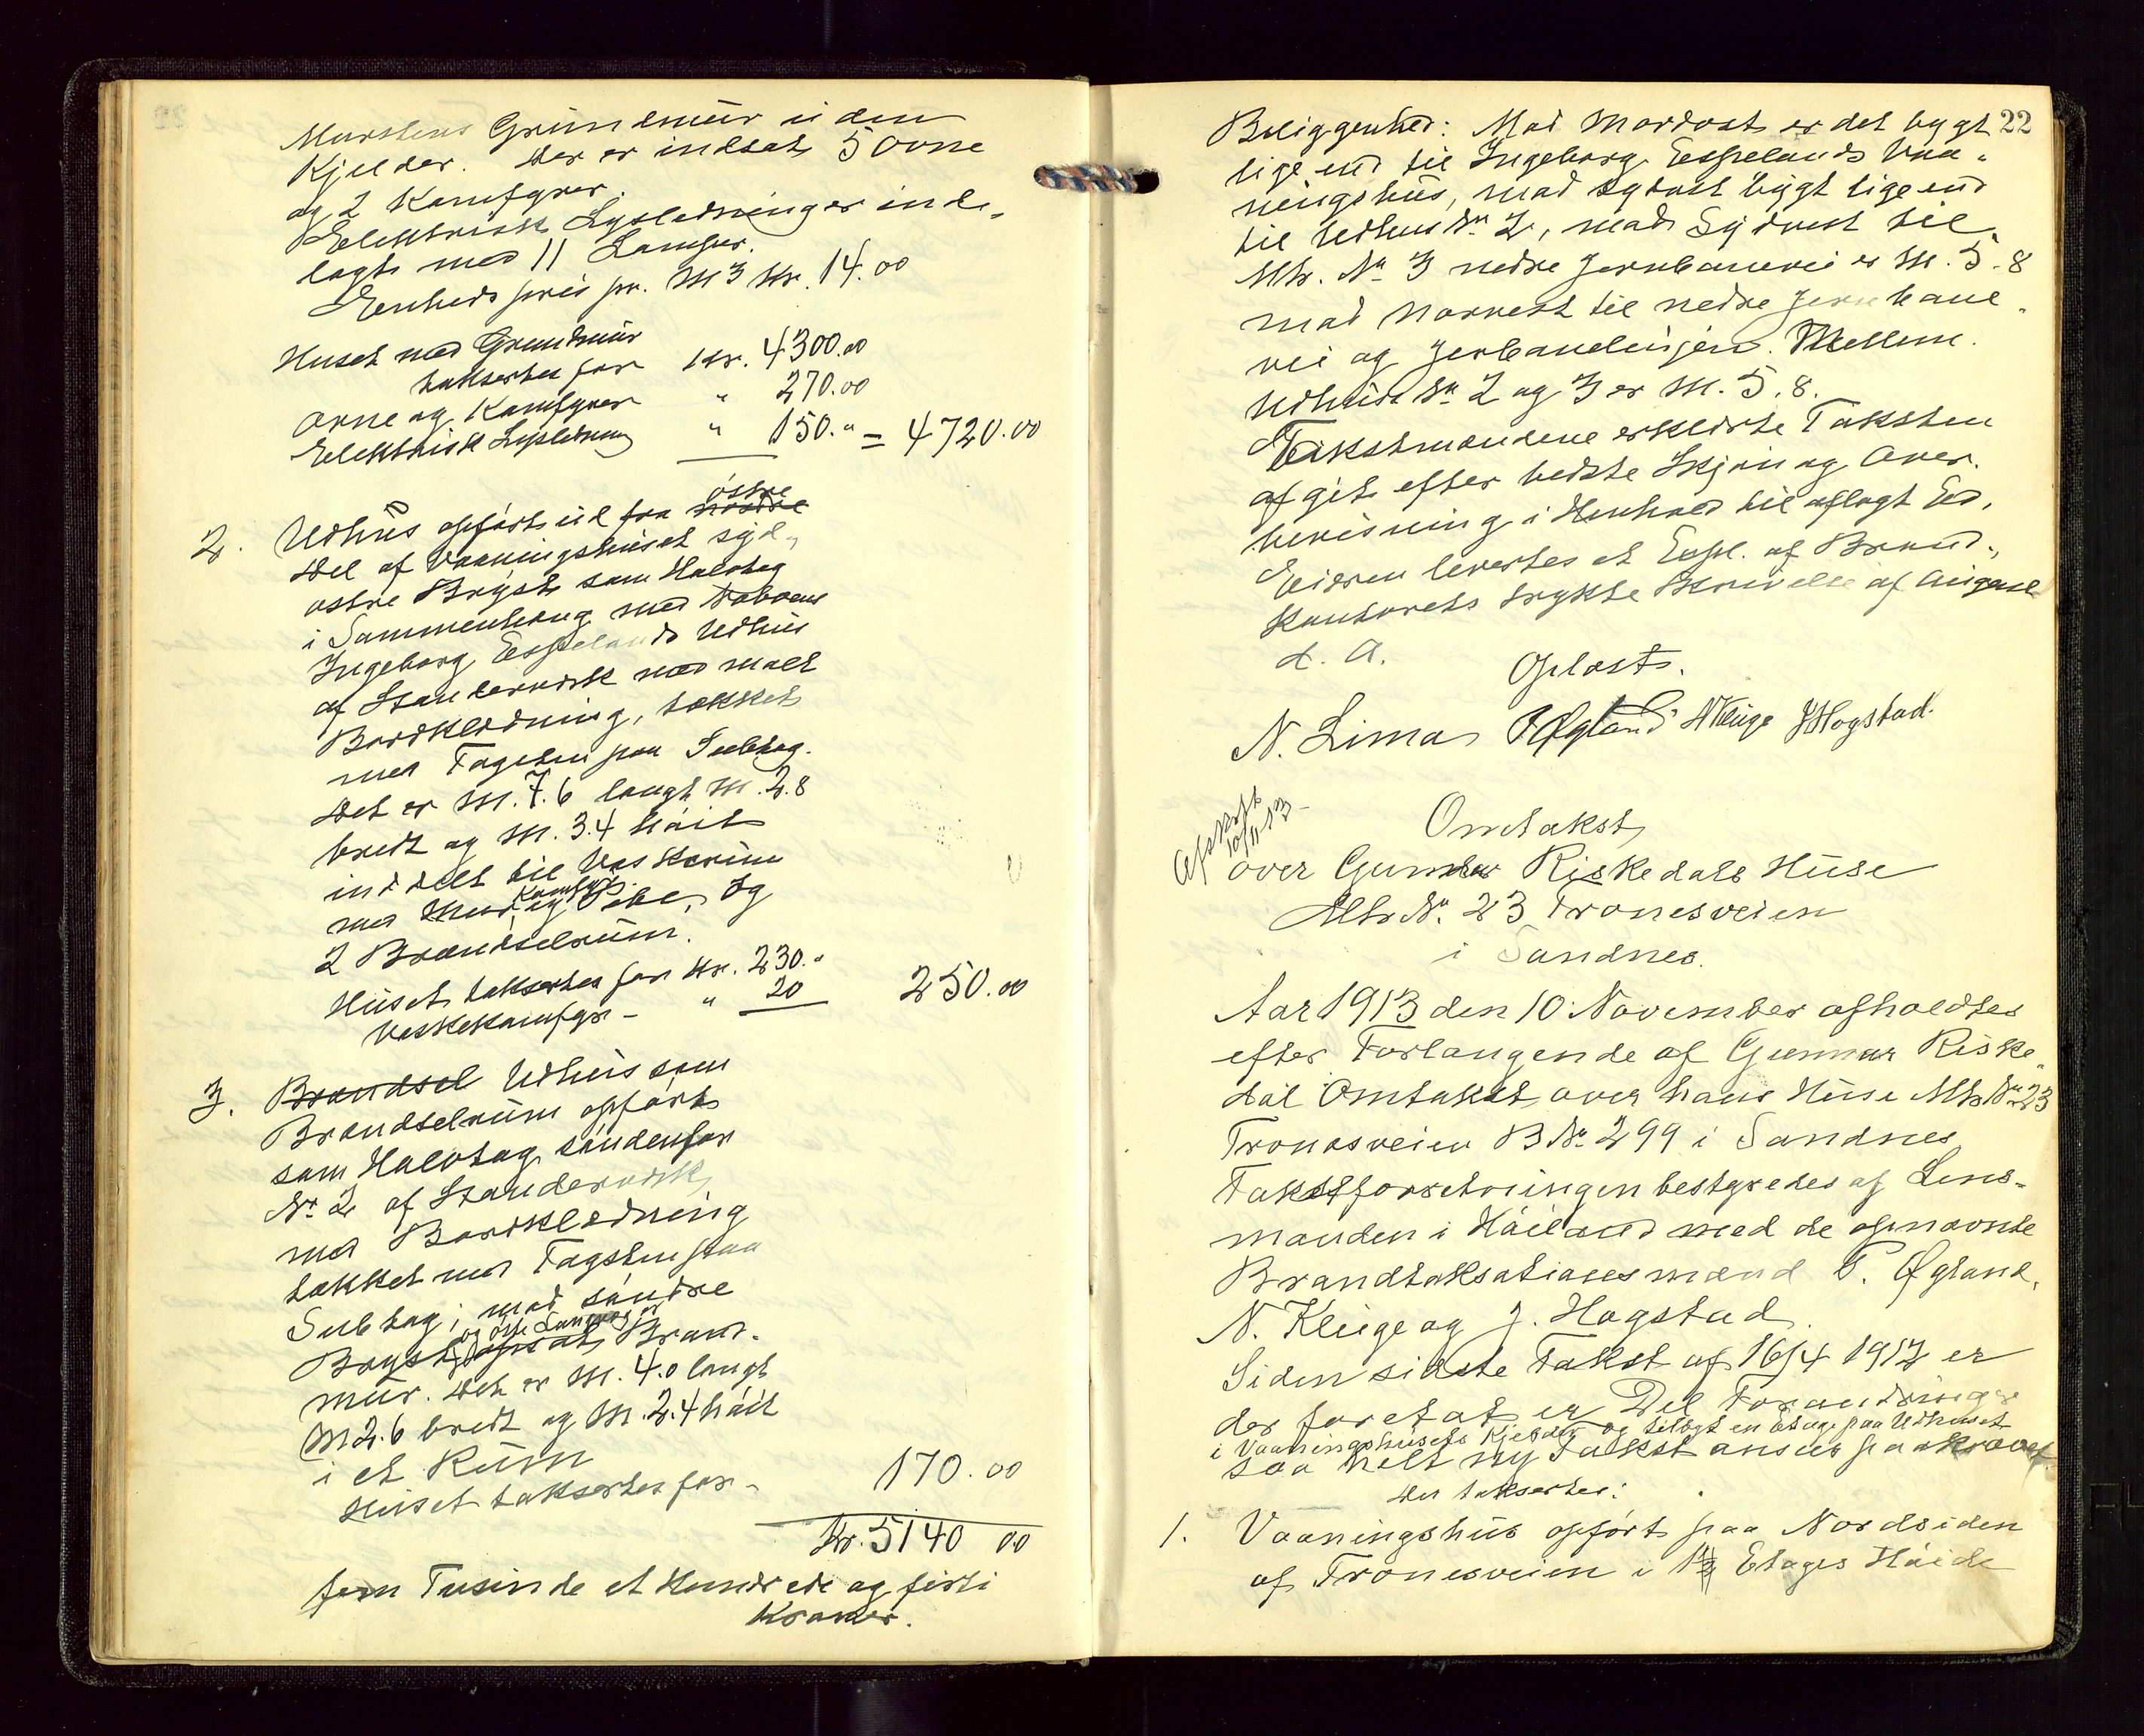 Murstens Grundmur i den
Kjelder. Der er indsat 5 Ovne
og 2 Komfyrer.
Elektrisk Lysledninger inde-
lagt med 11 Lamper.
Enheds pris pr. M3 Kr. 14.00
Huset med Grundmur
taksertes for Kr. 4300.00
Ovne og Komfyrer " 270.00
Elektrisk Lysledning " 150." = 4720.00
2. Udhus opført ud fra nordre østre
Del af Vaaningshuset syd-
østre Bryst som Halvtag
i Sammenheng med Naboens
Ingeborg Espelands Udhus
af Standerverk med malt
Bordkledning, tækket
med Tagsten paa Subtag.
Det er M. 7.6 langt M. 2.8
bredt og M. 3.4 høit
inddelt til Vaskerum
med Mur og Komfyr Pibe, og
2 Brændselrum.
Huset taksertes for Kr. 230."
Vaskekomfyr - " 20 250.00
3. Brændsel Udhus som
Brændselrum opført
som Halvtag søndenfor
Nr. 2 af Standerverk
med Bordkledning
tækket med Tagsten paa
Subtag; mod søndre
og østre Langvæg er
Bryst opsat Brand-
mur. Det er M. 4.0 langt
M 2.6 bredt og M. 2.4 høit
i et Rum
Huset taksertes for - 170.00
Kr. 5140 00
fem Tusinde et Hundrede og førti
Kroner.
22
Beliggenhed: Mod Nordost er det bygt
lige ind til Ingeborg Espelands Vaa-
ningshus, mod Sydost bygt lige ind
til Udhus Nr 2, mod Sydvest til
Mtr. Nr 3 nedre Jernbanevei er M. 5.8
mod Norvest til nedre Jernbane-
vei og Jerbanelinjen. Mellem
Udhus Nr 2 og 3 er M. 5.8.
Takstmændene erklærte Taksten
afgit efter bedste Skjøn og Over-
bevisning i Henhold til aflagt Ed.
Eieren levertes et Expl. af Brand-
Kontorets trykte Skrivelse af August
d. A.
Oplæst.
N. Lima P Øgland N Kluge J Hogstad.
Afskrift
10/11 13 -
Omtakst
over Gunnar Riskedals Huse
Mtr Nr. 23 Tronesveien
i Sandnes.
Aar 1913 den 10 November afholdtes
efter Forlangende af Gunnar Riske-
dal Omtakst over hans Huse Mtr Nr 23
Tronesveien B Nr. 299 i Sandnes
Takstforretningen bestyredes af Lens-
manden i Høiland med de opnævnte
Brandtaksationsmænd P. Øgland,
N. Kluge og J. Hogstad.
Siden sidste Takst af 16/4 1912 er
der foretat en Del Forandringer
i Vaaningshusets Kjelder og tilbygt en Etage paa Udhuset
saa helt ny Takst ansees paakrævet.
Der taksertes:
1. Vaaningshus opført paa Nordsiden
af Tronesveien i 1½ Etages Høide